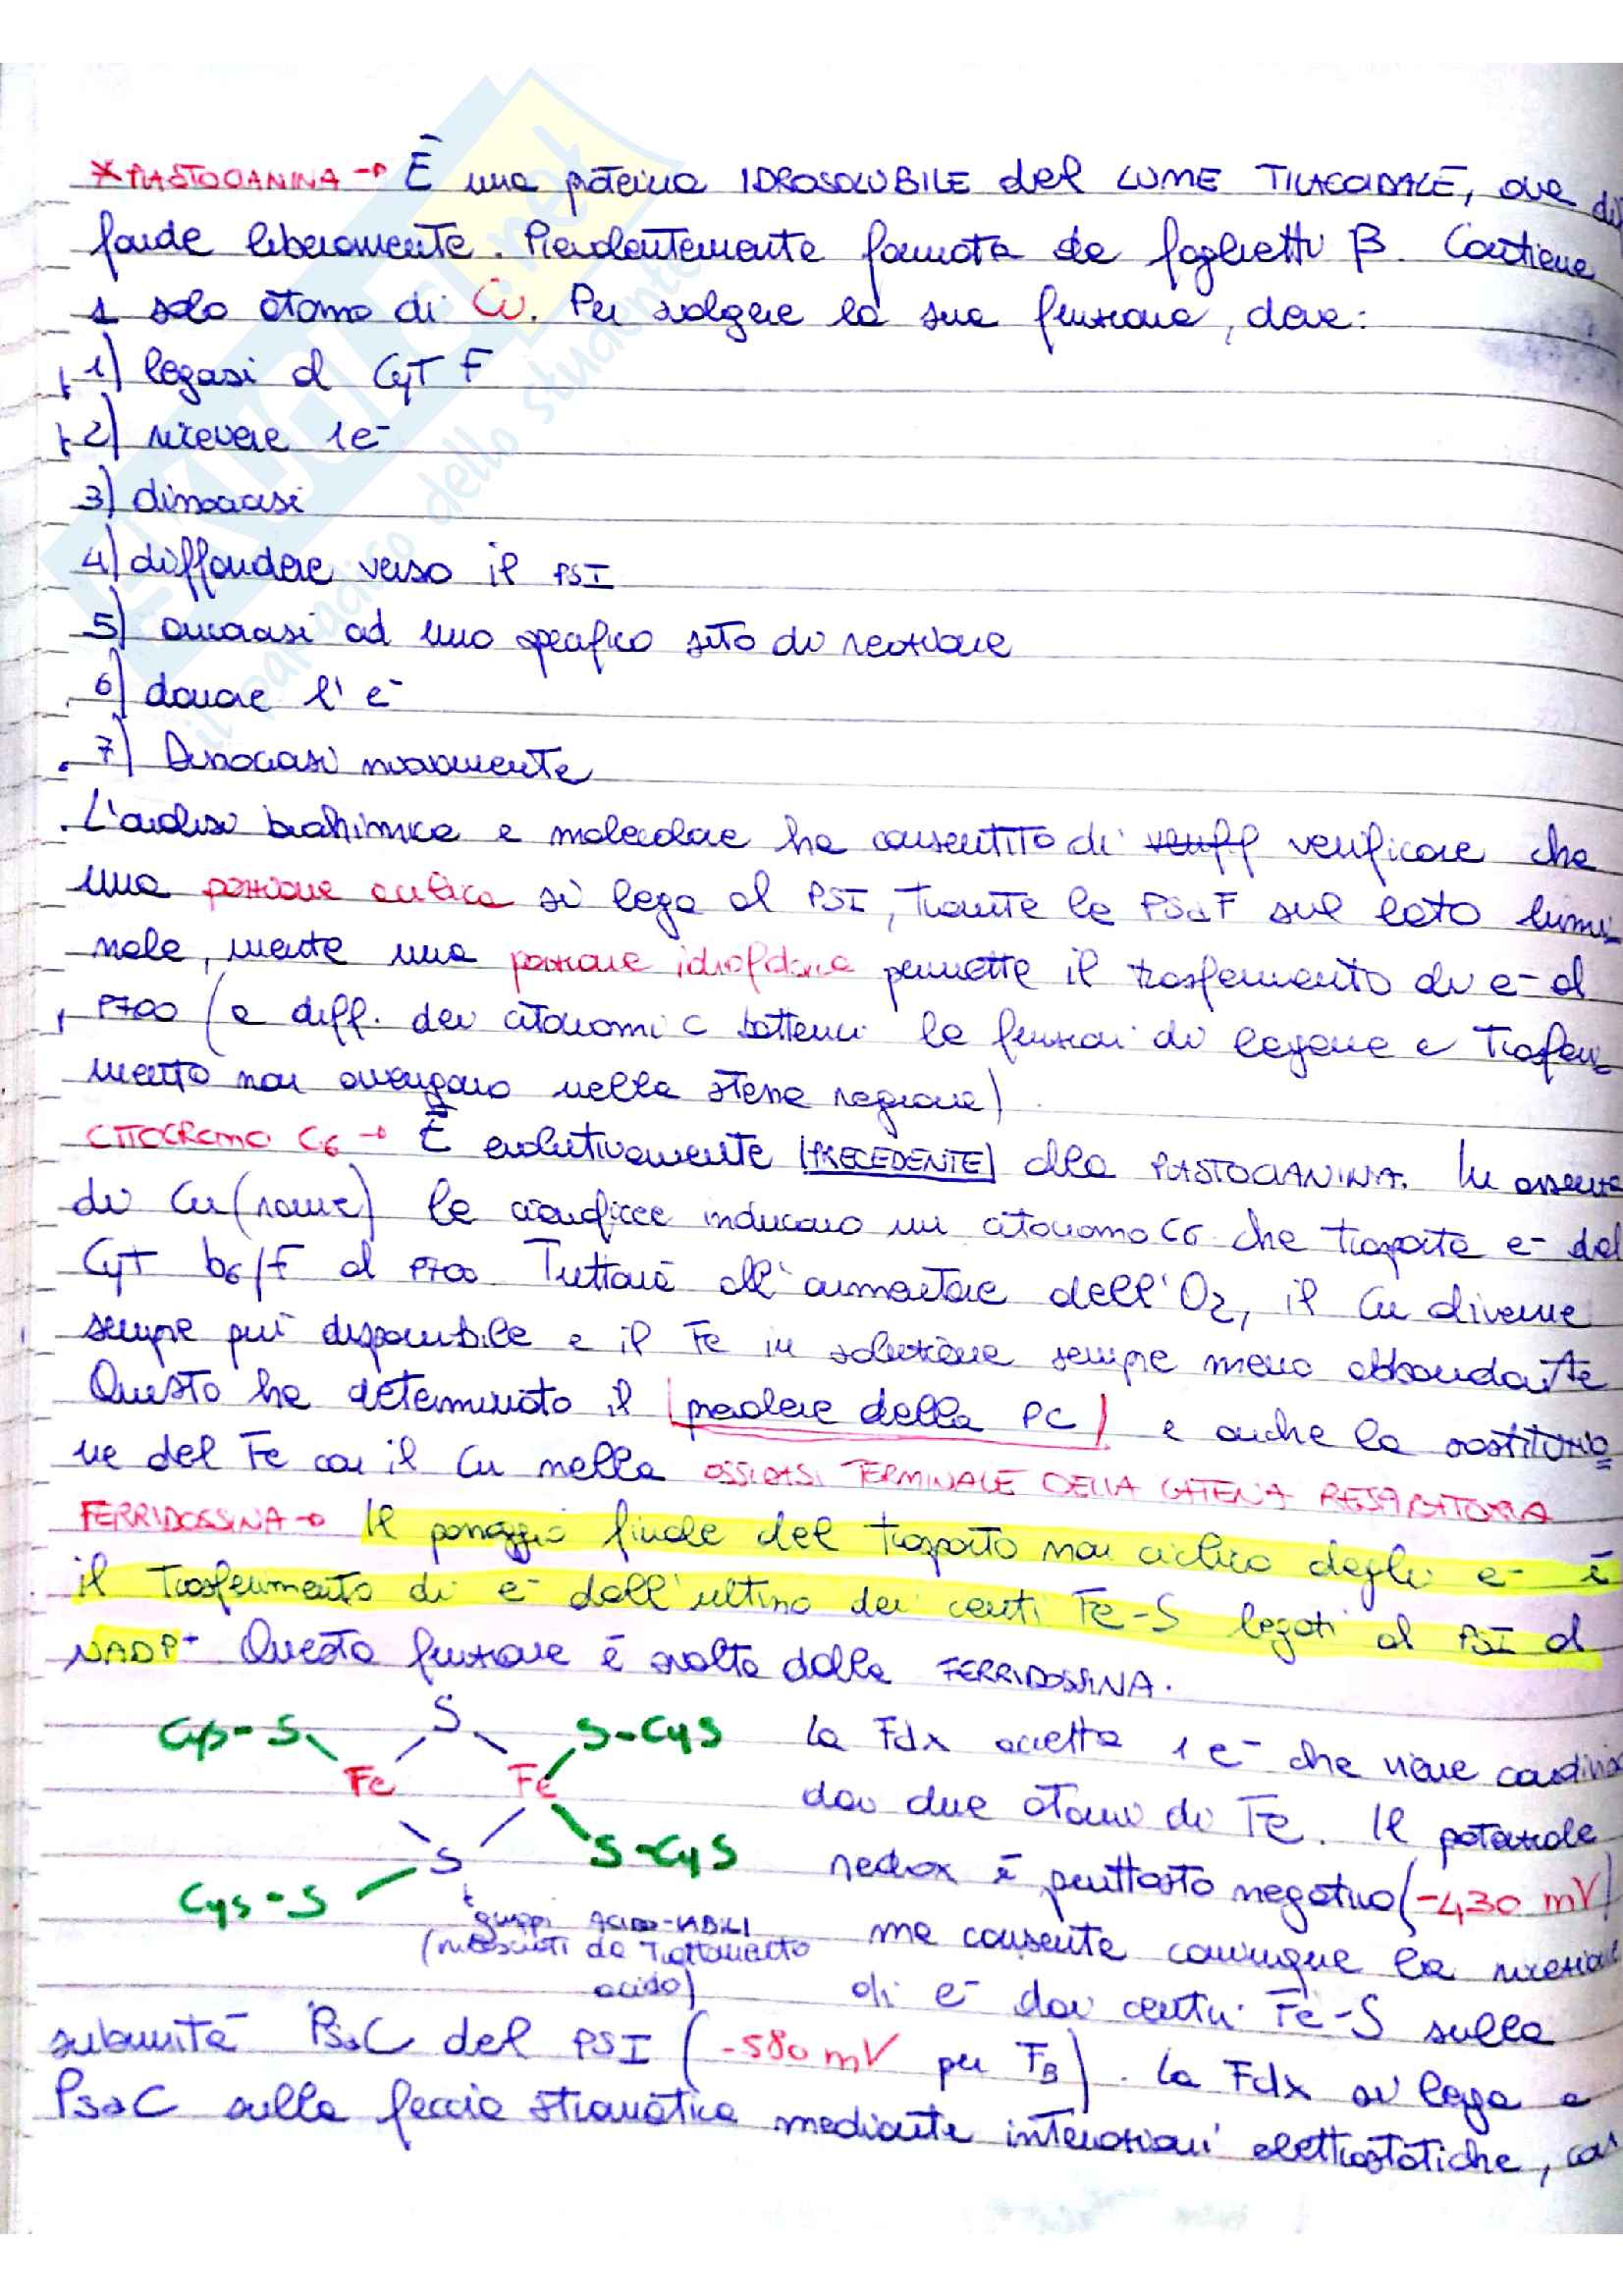 *PLASTOCIANINA → È una proteina IDROSOLUBILE del LUME TILACOIDALE, ove dif
fonde liberamente. Prevalentemente formata da foglietti β. Contiene
1 solo atomo di Cu. Per svolgere la sua funzione, deve:
1) legarsi al CYT F
2) ricevere 1e-
3) dissociarsi
4) diffondere verso il PSI
5) ancorarsi ad uno specifico sito di reazione
6) donare l'e-
7) Dissociarsi nuovamente
L'analisi biochimica e molecolare ha consentito di veriff verificare che
una porzione carica si lega al PSI, tramite la PSaF sul lato lumi
nale, mentre una porzione idrofobica permette il trasferimento di e- al
P700 (a diff. dei citocromi C batterici le funzioni di legame e trasferi
mento non avvengono nella stessa regione)
CITOCROMO C6 → È evolutivamente PRECEDENTE alla PLASTOCIANINA. In assenza
di Cu (rame) le cianoficee inducono un citocromo C6 che trasporta e- dal
CYT b6/F al P700. Tuttavia all'aumentare dell'O2, il Cu divenne
sempre più disponibile e il Fe in soluzione sempre meno abbondante
Questo ha determinato il prevalere della PC e anche la sostituzio
ne del Fe con il Cu nella OSSIDASI TERMINALE DELLA CATENA RESPIRATORIA
FERRIDOSSINA → Il passaggio finale del trasporto non ciclico degli e- è
il trasferimento di e- dall'ultimo dei centri Fe-S legati al PSI al
NADP+ Questa funzione è svolta dalla FERRIDOSSINA.
Cys-S S S-CyS
Fe Fe
S S-CyS
Cys-S
gruppi ACIDO-LABILI
(rilasciati da trattamento
acido)
La Fdx accetta 1 e- che viene coordina
dai due atomi di Fe. Il potenziale
redox è piuttosto negativo (-430 mV)
ma consente comunque la ricezione
di e- dai centri Fe-S sulla
subunità PsaC del PSI (-580 mV per FB). La Fdx si lega a
PsaC sulla faccia stromatica mediante interazioni elettrostatiche, con
SKUOLA.net
il paradiso dello studente